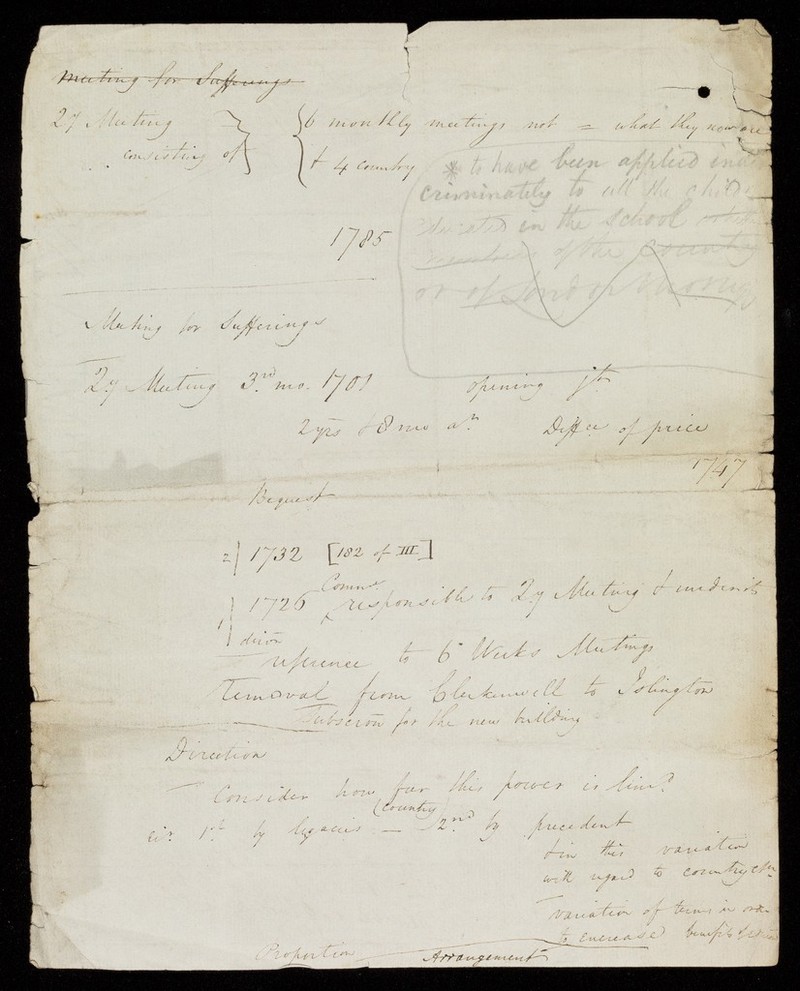 Meeting for Sufferings
Qy Meeting
consisting of
6 monthly meetings not = what they now are
+ 4 country
* to have been applied indis
criminately to all the child
in the school
of the Country
or of London Money
1785
Meeting for Sufferings
Qy Meeting 3rd mo. 1701 opening
2 yrs & 8 mo Diffce of price
1747
Bequest
2 | 1732 [182 of III]
Comme
1 | 1726 responsible to Qy Meeting &
reference to 6 Weeks Meetings
removal from Clerkenwell to Islington
for the new building
Direction
Consider how far this power is lim?
1st by legacies — (country) 2nd by precedent
this variation
with regard to country
variation of terms in
to encrease benefits
Proportion — Arrangement